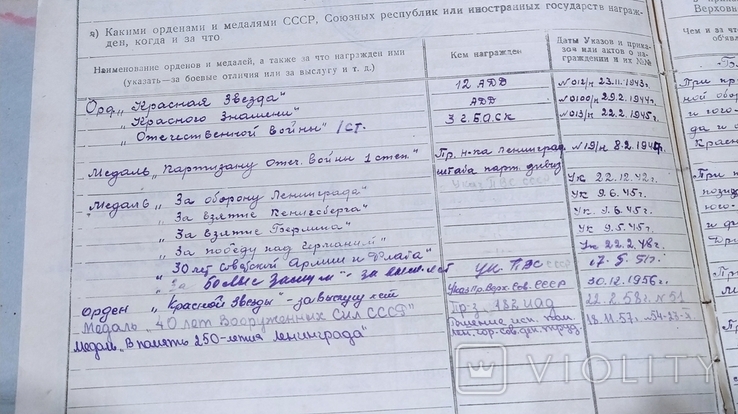 д) Какими орденами и медалями СССР, Союзных республик или иностранных государств награж-
ден, когда и за что
Наименование орденов и медалей, а также за что награжден ими
(указать—за боевые отличия или за выслугу и т. д.)
Кем награжден
Даты Указов и прика-
зов или актов о на-
граждении и их №№
Орд. „Красная Звезда" 12 АДД №012/н 23.11.1943г.
„Красного Знамени" АДД №0100/н 29.2.1944г.
„Отечественной войны" 1 ст. 3 г.БАСК №013/н 22.2.1945г.
Медаль „Партизану Отеч. Войны 1 степ." Пр. н-ка Ленинград. №19/н 8.2.
штаба парт. движ.
Медаль „За оборону Ленинграда" Указ ПВС СССР Ук 22.12.42г.
„За взятие Кенигсберга" Ук 9.6.45г.
„За взятие Берлина" Ук 9.6.45г.
„За победу над Германией" Ук 9.5.45г.
„30 лет Советской Армии и Флота" Ук 22.2.48г.
„За боевые заслуги" - за выслугу лет Ук. ПВС СССР 17.5.51г.
Орден „Красной Звезды" - за выслугу лет Указ Пр.Верх.Сов.СССР 30.12.1956г.
Медаль „40 лет Вооруженных Сил СССР" Пр-з 182 иад 22.2.58г. №51
Медаль „В память 250-летия Ленинграда" Решение исп. ком. 18.11.57г.
Лен.гор.сов.деп.труд.
Верховн
Чем и за что
объявл
При пр
ной обор
и
да и
Красно
При
ного
VIOLITY